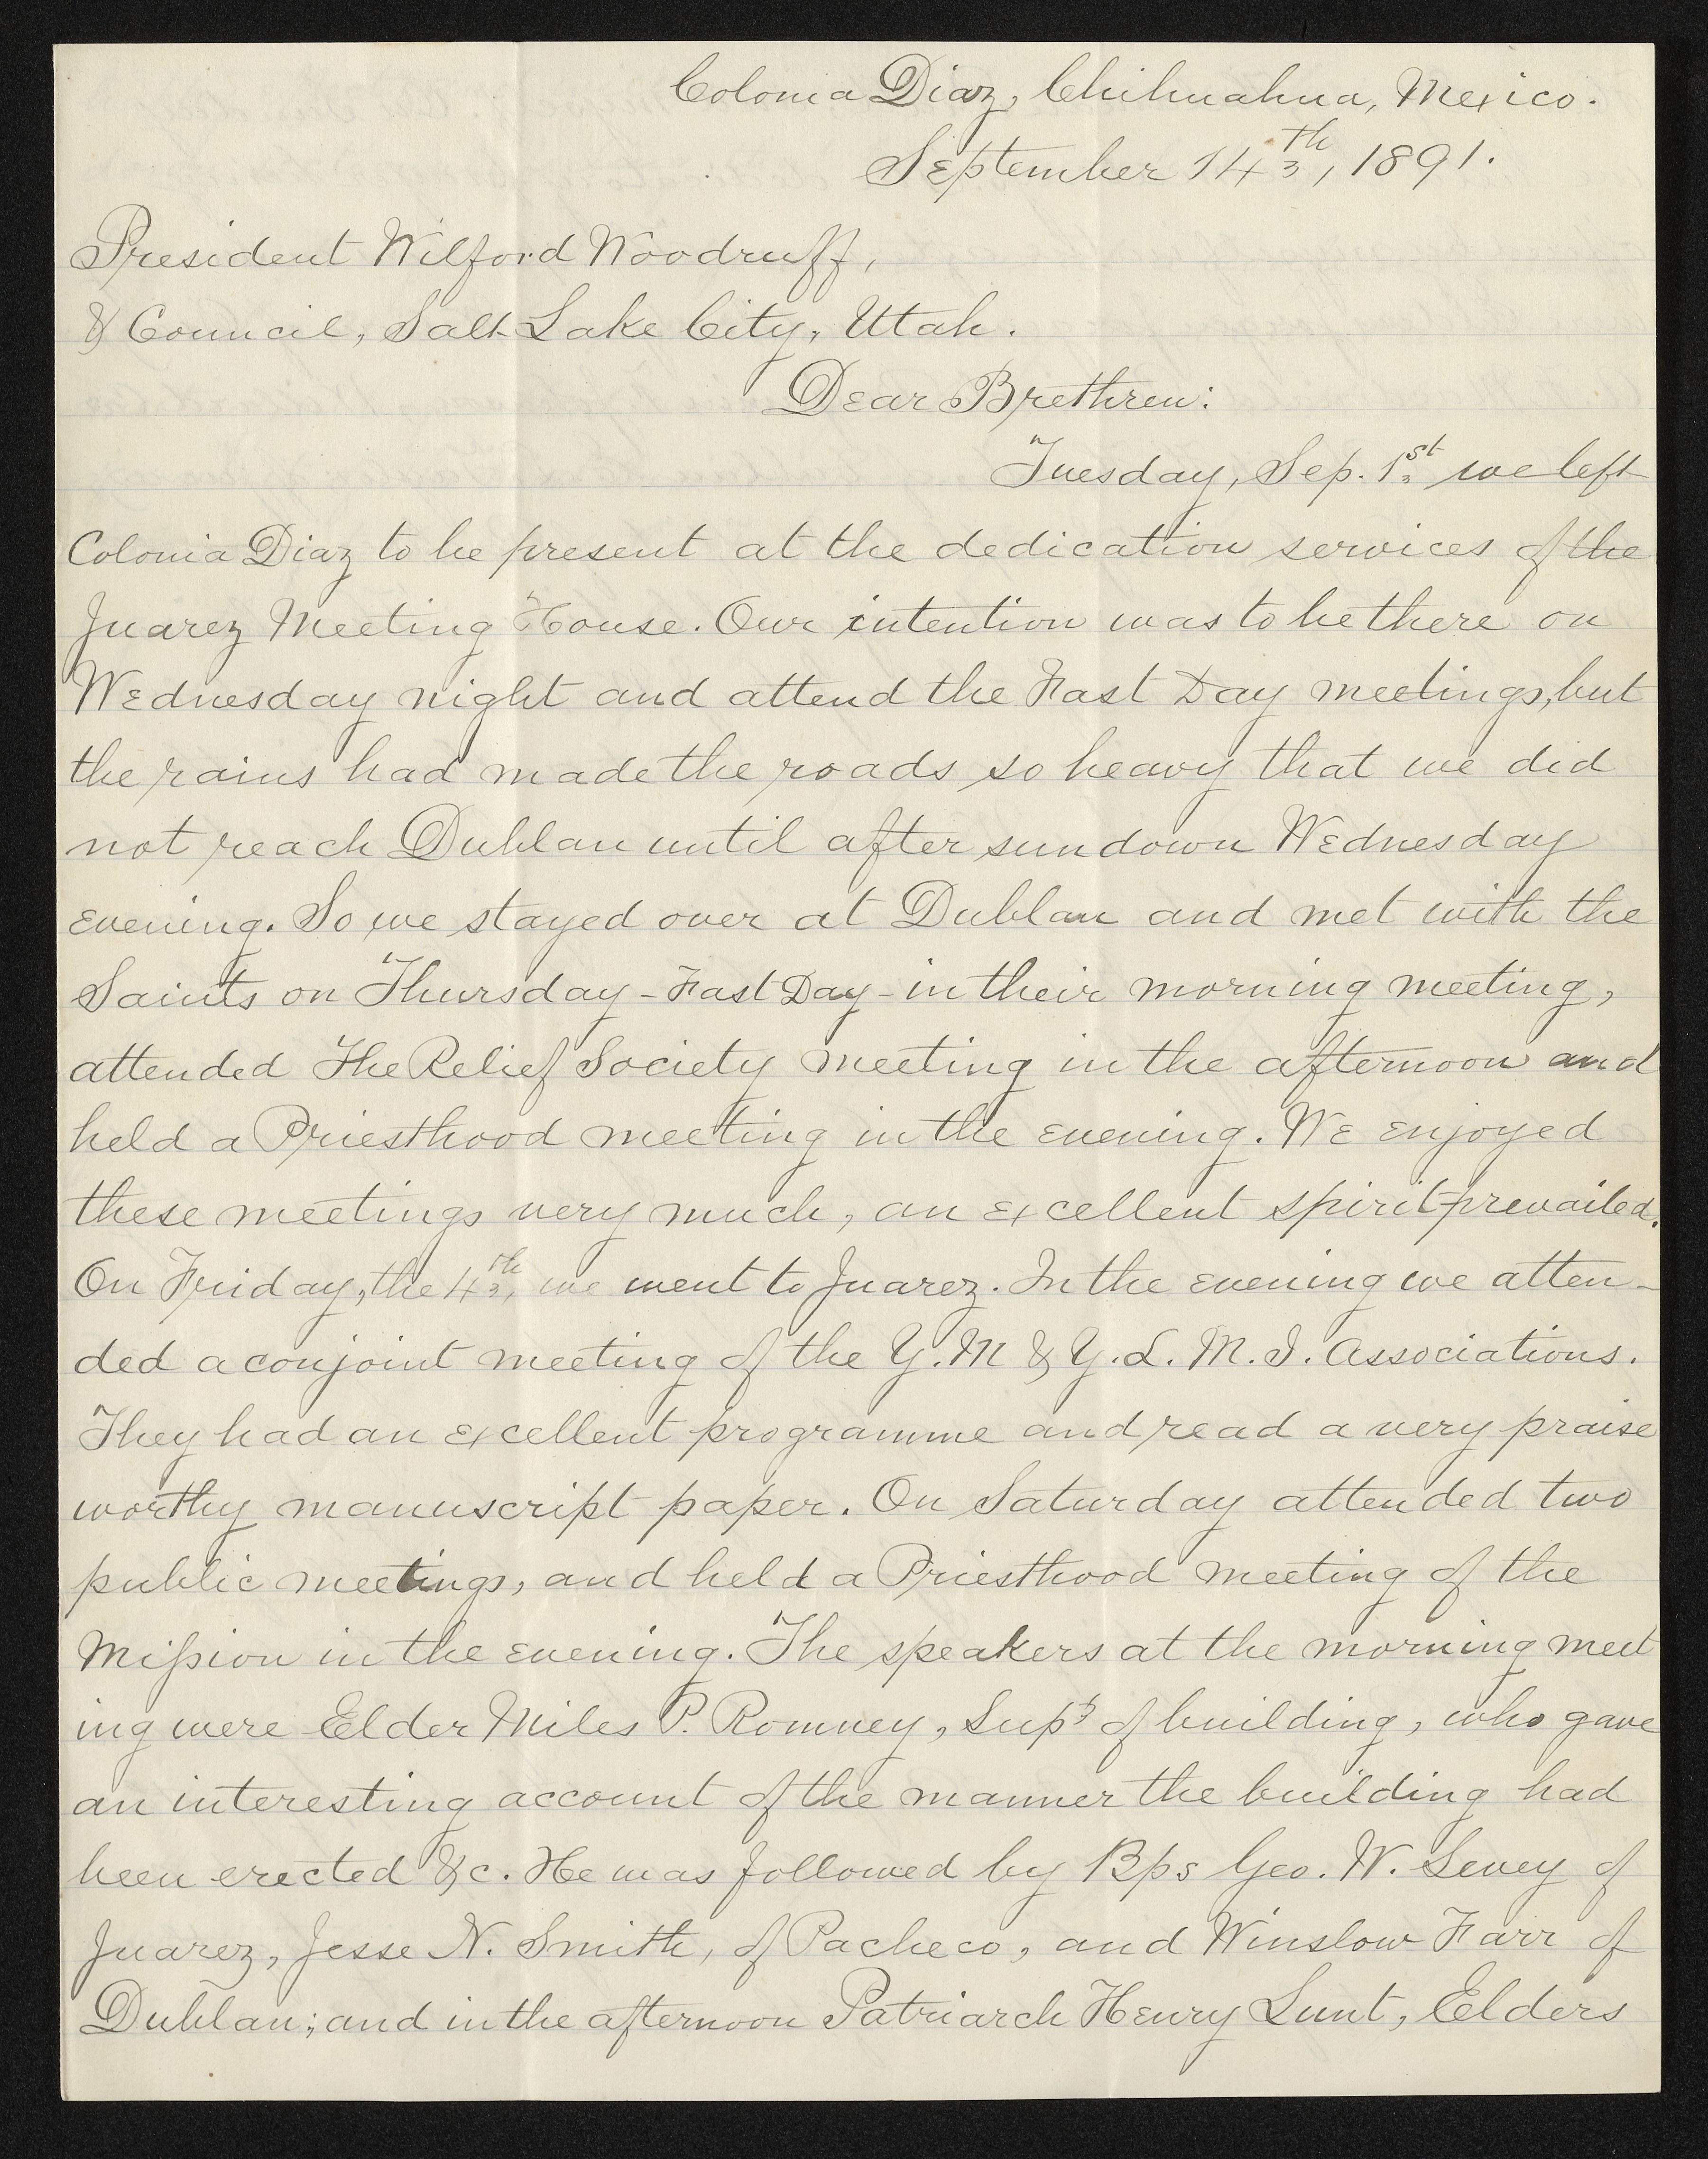 Colonia Diaz, Chihuahua, Mexico.
September 14th, 1891.
President Wilford Woodruff,
& Council, Salt Lake City, Utah.
Dear Brethren:
Tuesday, Sep. 1st we left
Colonia Diaz to be present at the dedication services of the
Juarez Meeting House. Our intention was to be there on
Wednesday night and attend the Fast Day meetings, but
the rains had made the roads so heavy that we did
not reach Dublan until after sundown Wednesday
evening. So we stayed over at Dublan and met with the
Saints on Thursday - Fast Day - in their morning meeting,
attended The Relief Society meeting in the afternoon and
held a Priesthood meeting in the evening. We enjoyed
these meetings very much, an excellent spirit prevailed.
On Friday, the 4th, we went to Juarez. In the evening we atten-
ded a conjoint meeting of the Y. M & Y. L. M. I. Associations.
They had an excellent programme and read a very praise
worthy manuscript paper. On Saturday attended two
public meetings, and held a Priesthood meeting of the
Mission in the evening. The speakers at the morning meet
ing were Elder Miles P. Romney, Supt of building, who gave
an interesting account of the manner the building had
been erected &c. He was followed by Bps Geo. W. Sevey of
Juarez, Jesse N. Smith, of Pacheco, and Winslow Farr of
Dublan; and in the afternoon Patriarch Henry Lunt, Elders